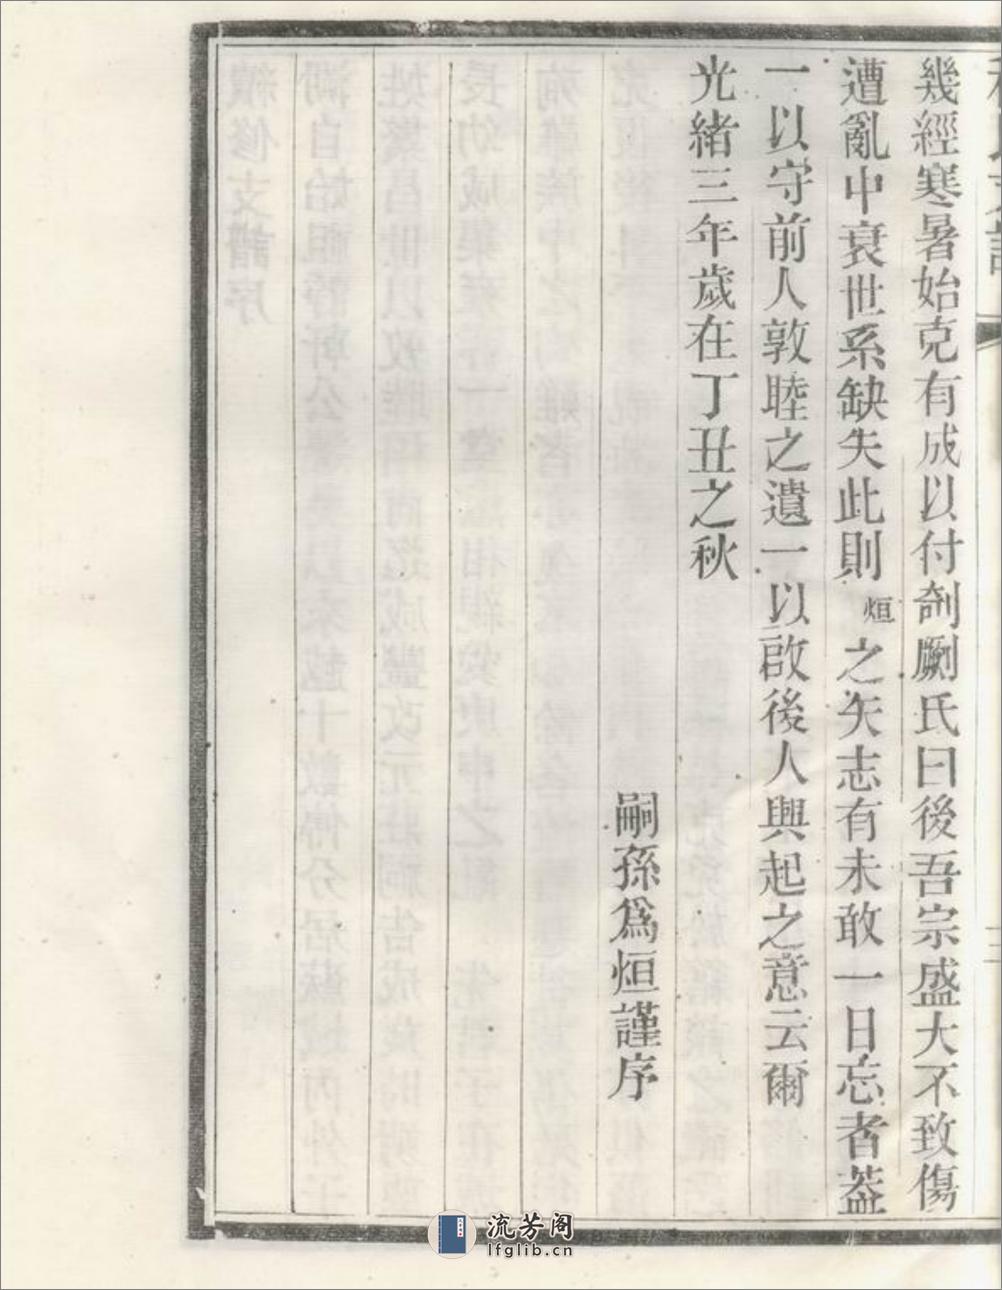 幾經寒暑始克有成以付剞劂氏曰後吾宗盛大不致傷
遭亂中衰世系缺失此則烜之矢志有未敢一日忘者葢
一以守前人敦睦之遺一以啟後人興起之意云爾
光緒三年歲在丁丑之秋
嗣孫爲烜謹序
流芳阁
lfglib.cn